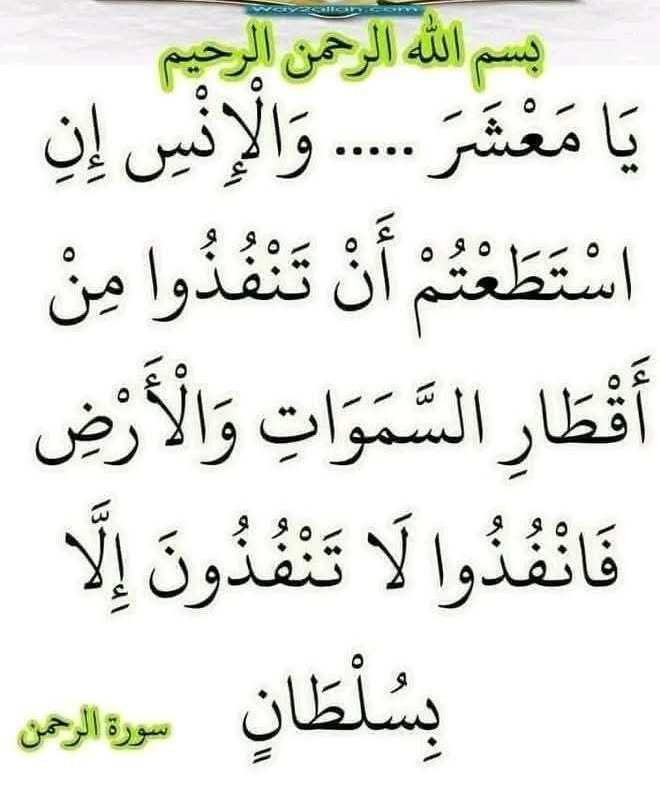 Way2allah.com
بسم الله الرحمن الرحيم
يَا مَعْشَرَ ..... وَالْإِنْسِ إِنِ
اسْتَطَعْتُمْ أَنْ تَنْفُذُوا مِنْ
أَقْطَارِ السَّمَوَاتِ وَالْأَرْضِ
فَانْفُذُوا لَا تَنْفُذُونَ إِلَّا
بِسُلْطَانٍ
سورة الرحمن